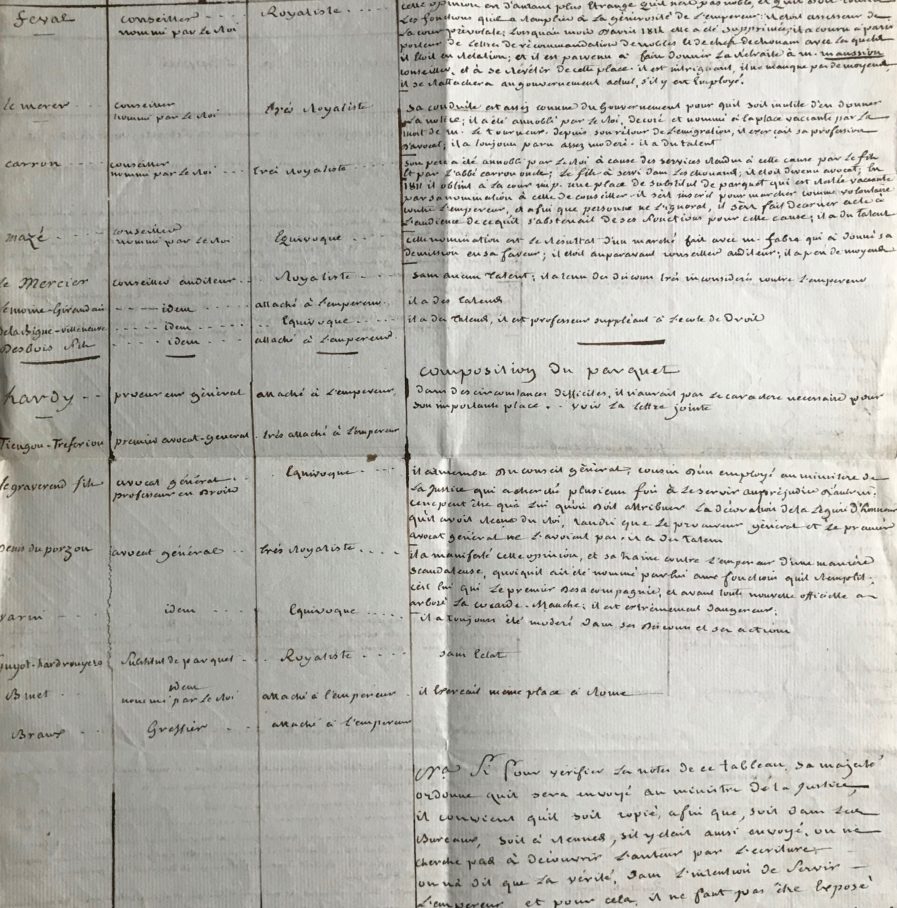 cette opinion est d'autant plus étrange qu'il n'est pas noble, et qu'il doit
feval conseiller Royaliste Les fonctions qu'il a à La générosité de L'empereur; il étoit assesseur de
nommé par Le Roi La cour prévotale; Lorsqu'au mois d'avril 1814 elle a été supprimée, il a couru à paris
porteur de Lettres de récommandation de nobles et de chefs de chouans avec Lesquels
il étoit en Relation; et il est parvenu à faire donner La Retraite à m. maussion
conseiller, et à se Revêtir de cette place. il est intriguant, il ne manque pas de moyens,
il se Rattachera au gouvernement actuel, s'il y est Employé.
Le merer conseiller très Royaliste Sa conduite est assez connue du Gouvernement pour qu'il soit inutile d'en donner
nommé par Le Roi La notice; il a été annobli par Le Roi, décoré et nommé à la place vacante par La
mort de m. Le tourneur. depuis son retour de L'émigration, il exerçait sa profession
d'avocat; il a toujours paru assez modéré. il a du talent
carron conseiller très Royaliste Son père a été annobli par Le Roi à cause des services Rendus à cette cause par Le fils
nommé par Le Roi Et par L'abbé carron oncle; Le fils a servi dans Les chouans; il étoit devenu avocat; En
1811 il obtint à La cour imp. une place de substitut de parquet qui est Restée vacante
par sa nomination à celle de conseiller. il s'est inscrit pour marcher comme volontaire
contre L'empereur, et afin que personne ne L'ignorat, il s'est fait décerner acte à
L'audience de ce qu'il s'abstenait de ses fonctions pour cette cause; il a du talent
mazé conseiller Equivoque cette nomination est Le Résultat d'un marché fait avec m. fabre qui a donné sa
nommé par Le Roi démission en sa faveur; il étoit auparavant conseiller auditeur; il a peu de moyens
Le Mercier conseiller auditeur Royaliste Sans aucun talent; il a tenu des discours très inconsidérés contre L'empereur
Lemoine-Giraudais idem attaché à L'empereur il a des talents
de la Bigne-villeneuve idem Equivoque il a des talents, il est professeur suppléant à L'école de Droit
Desbois fils idem attaché à L'empereur
composition du parquet
hardy procureur général attaché à L'empereur, dans des circonstances difficiles, il n'aurait pas le caractère nécessaire pour
son importante place. voir La Lettre jointe
Tiengou-Treferiou premier avocat-général très attaché à L'empereur
Le graverend fils avocat général Equivoque il est membre du conseil général; cousin d'un employé au ministère de
professeur en Droit La justice qui a cherché plusieurs fois à Le servir au préjudice d'autrui.
ce n'est peut être qu'à Lui qu'on doit attribuer La décoration de La Légion d'honneur
qu'il avoit Reçue du Roi, tandis que Le procureur général et Le premier
avocat général ne L'avoient pas. il a des talents
Denis du porzou avocat général très Royaliste il a manifesté cette opinion, et sa haine contre L'empereur d'une manière
scandaleuse, quoiqu'il ait été nommé par lui aux fonctions qu'il Remplit.
c'est lui qui Le premier de sa compagnie, et avant toute nouvelle officielle a
arboré La cocarde Blanche; il est extrêmement dangereux.
varin idem Equivoque il a toujours été modéré dans ses Discours et ses actions
Guyot-hardrouyere Substitut de parquet Royaliste sans Eclat
Binet idem attaché à L'empereur il Exerçait même place à Rome
nommé par Le Roi
Braux Greffier attaché à L'empereur
Nta Si pour vérifier La notes de ce tableau, Sa majesté
ordonne qu'il sera envoyé au ministre de La justice,
il convient qu'il soit copié, afin que, soit dans Les
Bureaux, soit à Rennes, s'il y était aussi envoyé, on ne
cherche pas à découvrir L'auteur par L'écriture,
on n'a dit que La vérité, dans L'intention de servir
L'empereur et pour cela, il ne faut pas être Exposé